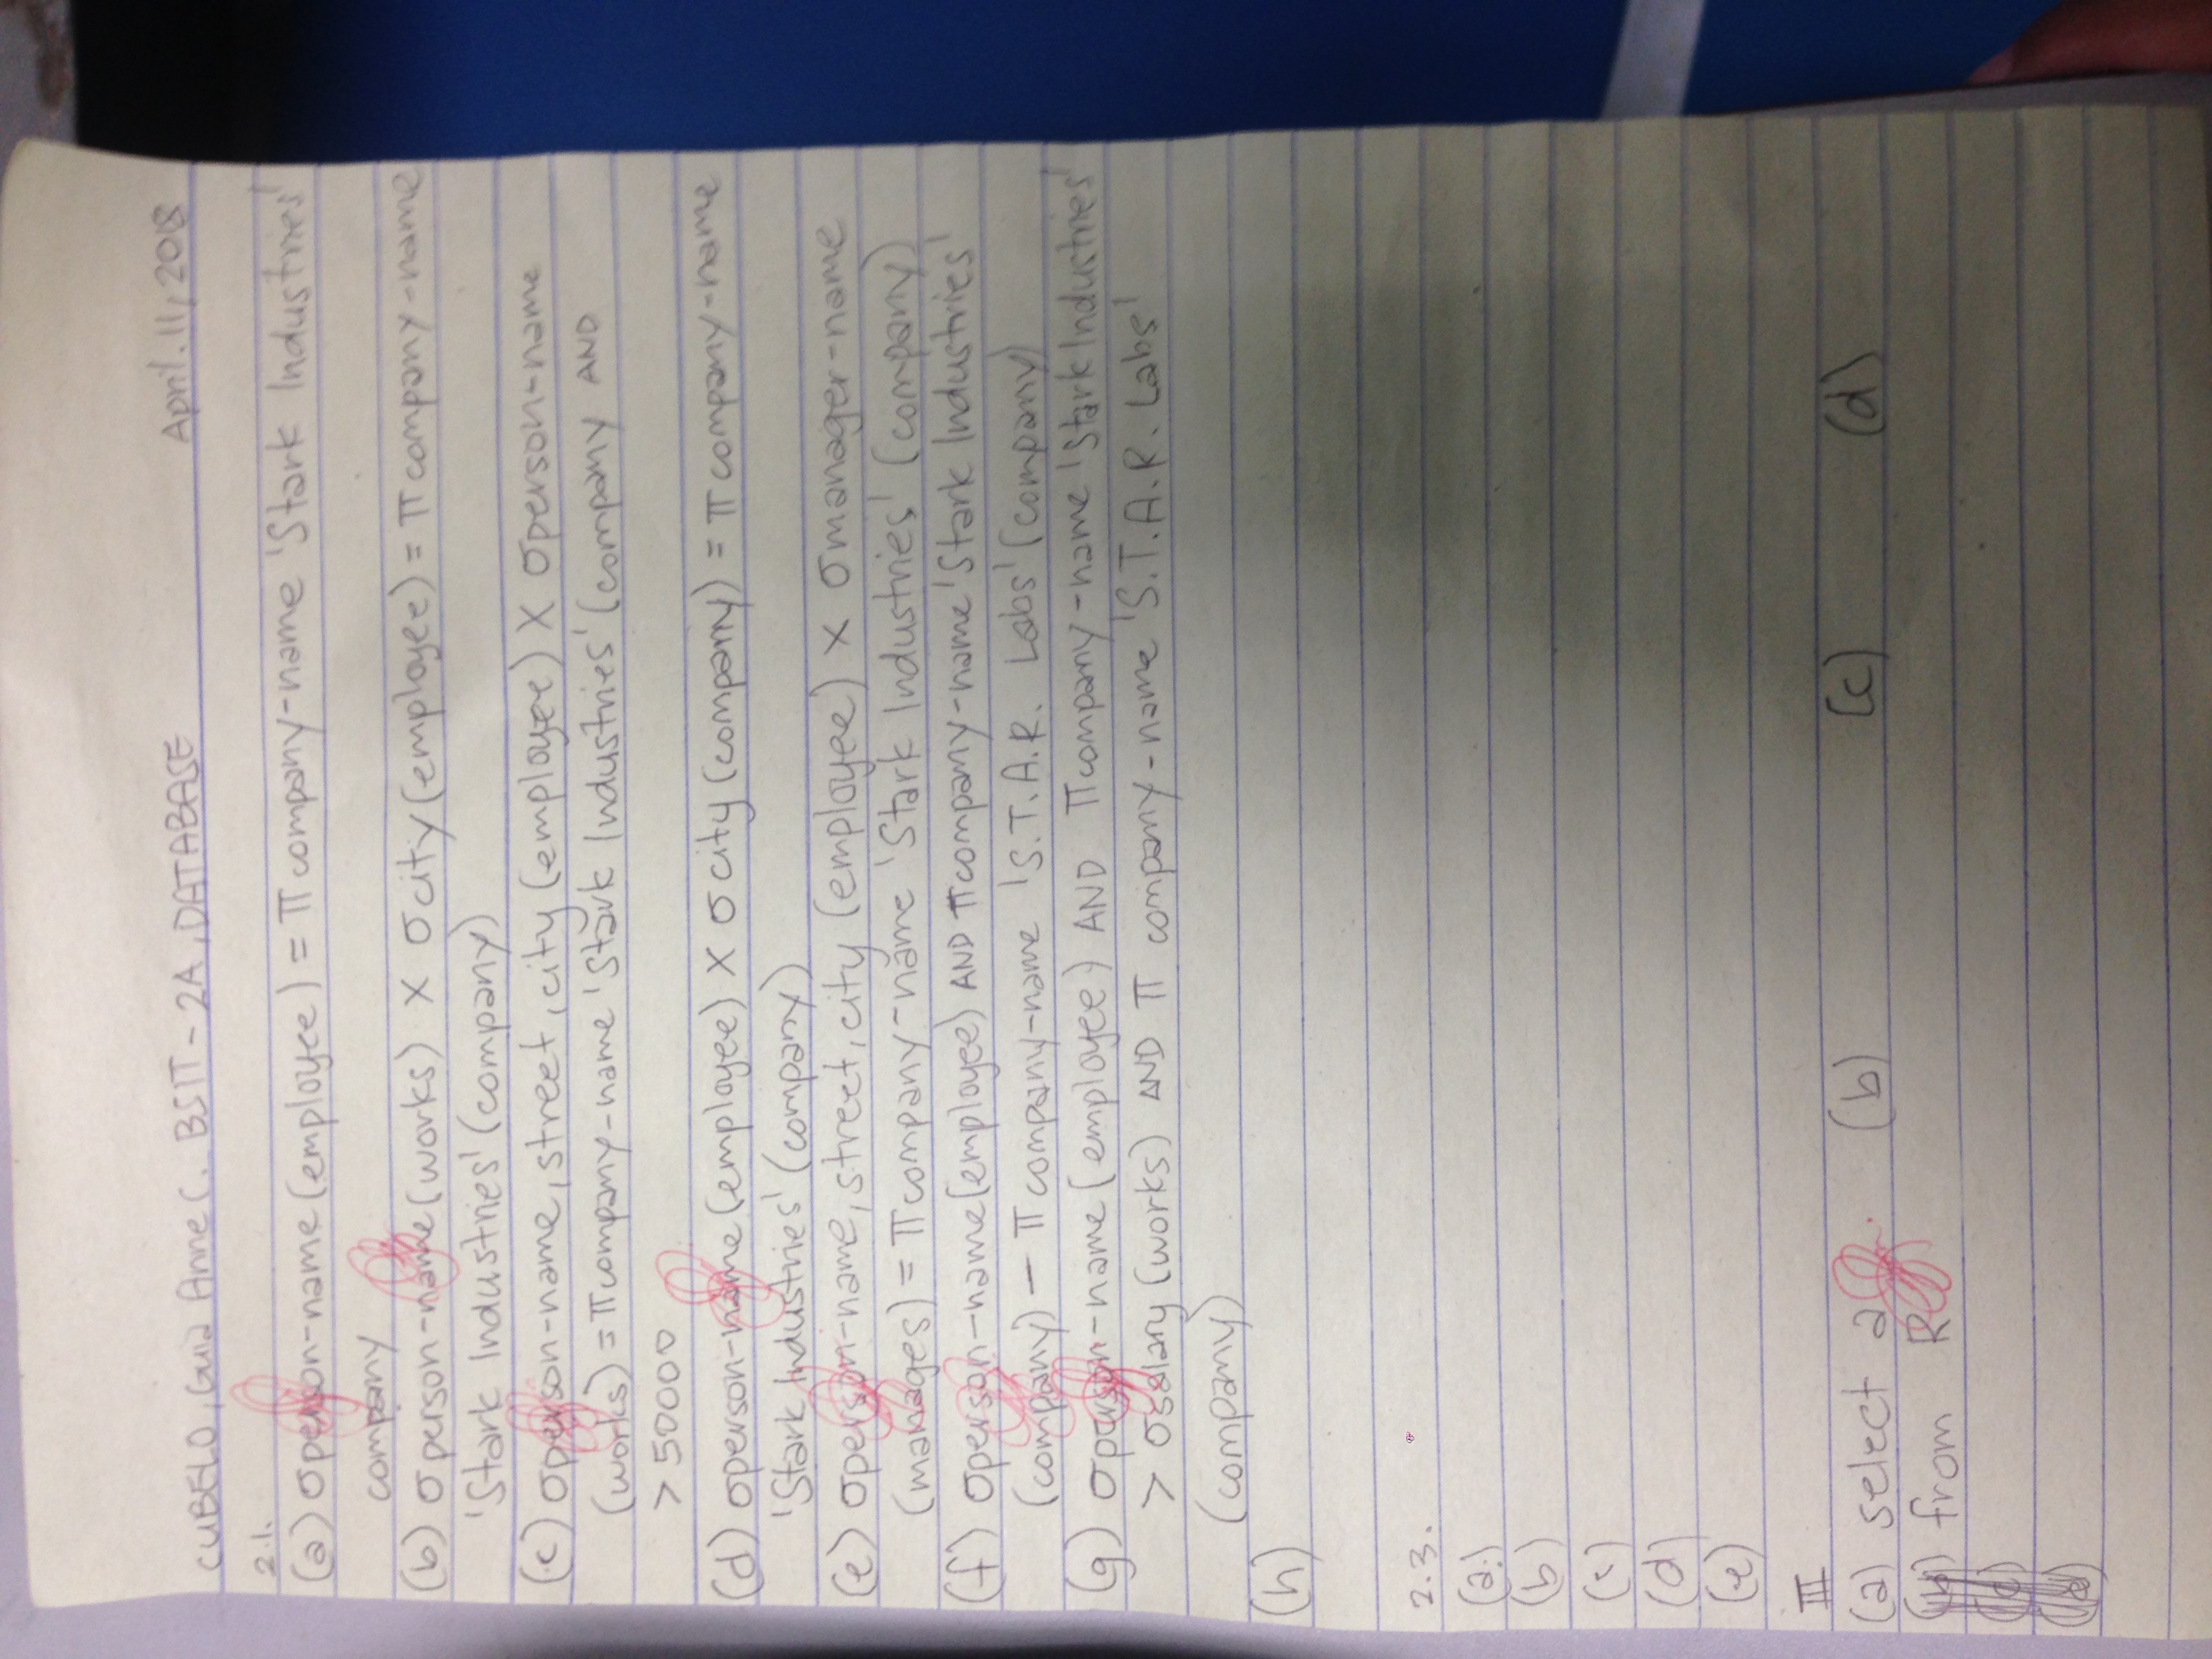 CUBELO, Guia Anne C. BSIT - 2A, DATABASE April. 11, 2018
2.1.
(a) σperson-name (employee) = π company-name 'Stark Industries'
company
(b) σ person-name (works) X σ city (employee) = π company-name
'Stark Industries' (company)
(c) σperson-name, street, city (employee) X σperson-name
(works) = π company-name 'Stark Industries' (company AND
> 50000
(d) σperson-name (employee) X σ city (company) = π company-name
'Stark Industries' (company)
(e) σperson-name, street, city (employee) X σmanager-name
(manages) = π company-name 'Stark Industries' (company)
(f) σperson-name (employee) AND π company-name 'Stark Industries'
(company) - π company-name 'S.T.A.R. Labs' (company)
(g) σperson-name (employee) AND π company-name 'Stark Industries'
> σsalary (works) AND π company-name 'S.T.A.R. Labs'
(company)
(h)
2.3.
(a.)
(b)
(c)
(d)
(e)
III
(a) select a (b) (c) (d)
from R